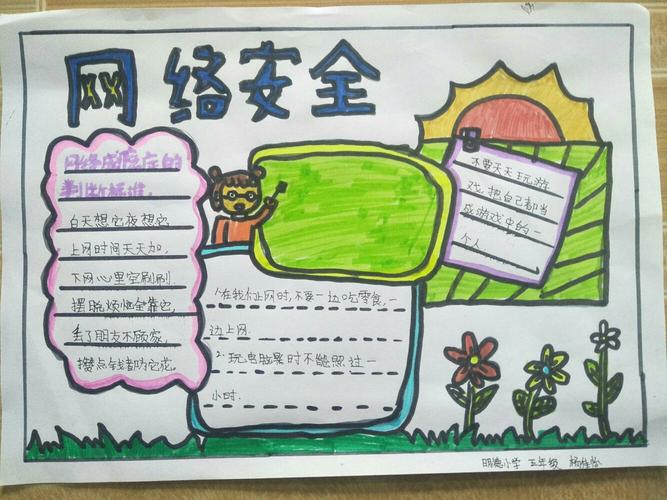 网络安全
网络成瘾症的
判断标准.
白天想它夜想它
上网时间天天加.
下网心里空刷刷
摆脱烦恼全靠它,
丢了朋友不顾家.
攒点钱都防它花。
1.在我们上网时,不要一边吃零食,一
边上网.
2.玩电脑是时不能照过一
小时.
不要天天玩游
戏,把自己都当
成游戏中的一
个人
明德小学 五年级 杨